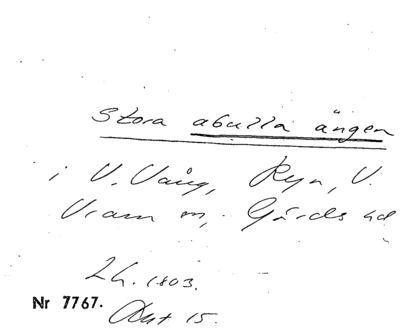 Stora abulla ängen
i V. Vång, Ryn, V.
Vram sn, Gärds hd
Lh. 1803.
Nr 7767.
Akt 15.